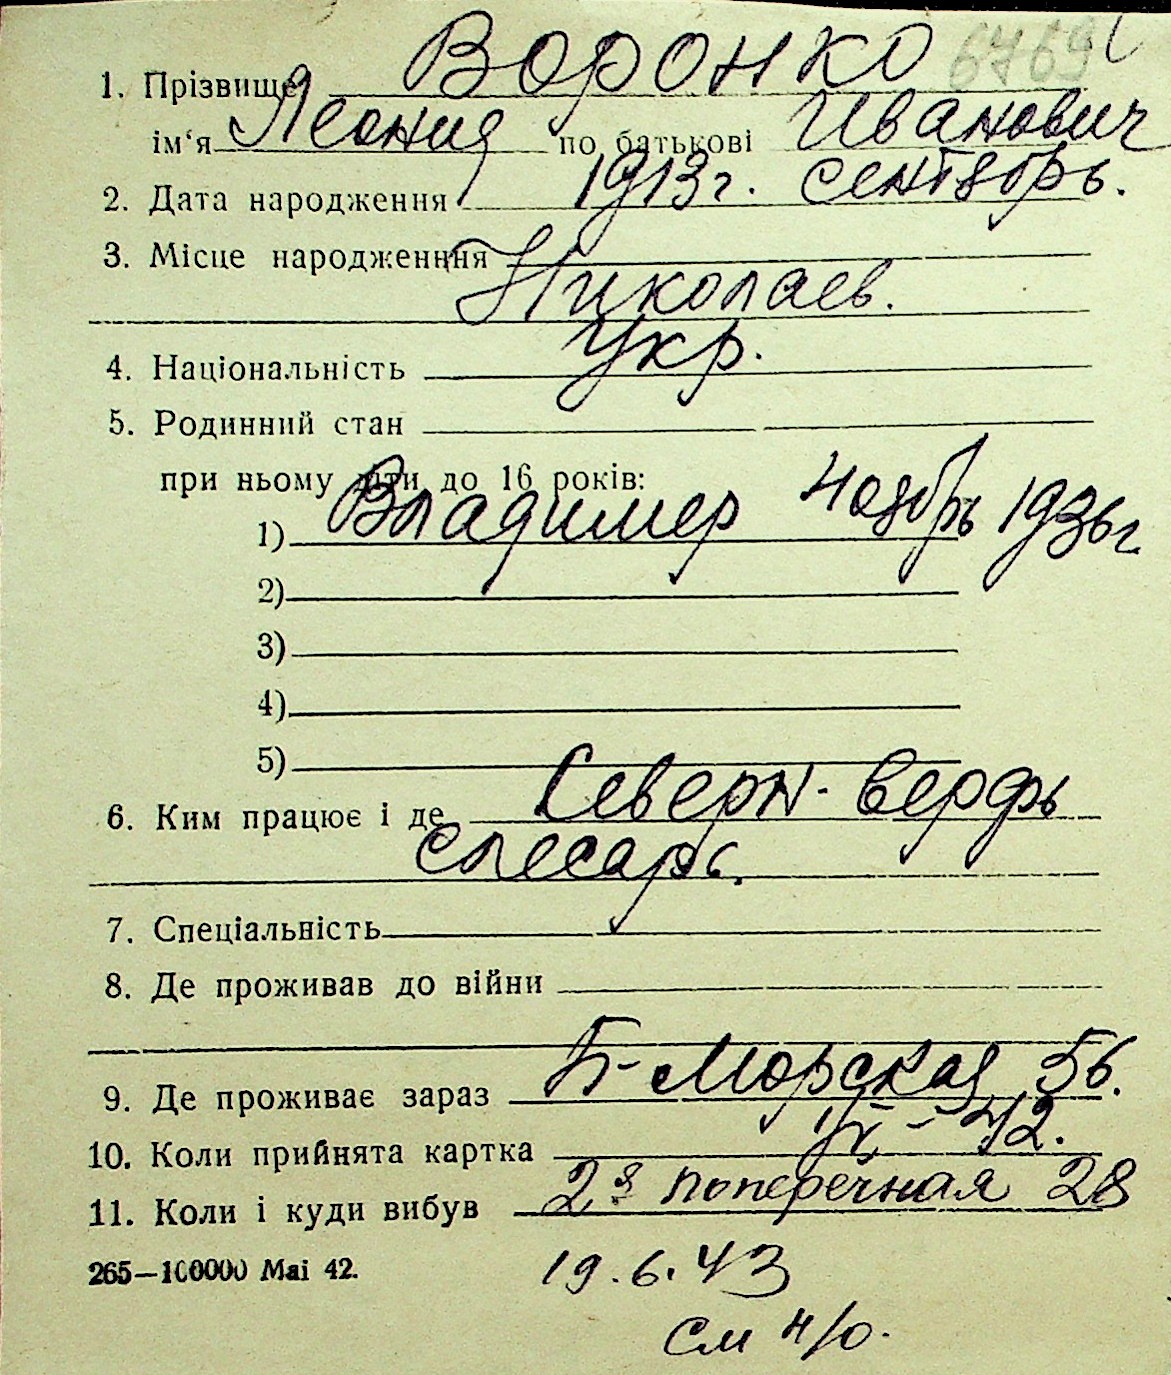 6769
1. Прізвище Воронко
ім‘я Леонид по батькові Иванович
2. Дата народження 1913г. сентябрь.
3. Місце народженння Николаев.
4. Національність Укр.
5. Родинний стан
при ньому діти до 16 років:
1) Владимер ноябрь 1936г
2)
3)
4)
5)
6. Ким працює і де Северн. верфь
слесарь.
7. Спеціальність
8. Де проживав до війни
9. Де проживає зараз Б-Морская 56.
10. Коли прийнята картка IX-42.
11. Коли і куди вибув 2я поперечная 28
265—100000 Mai 42.
19.6.43
см н/о.